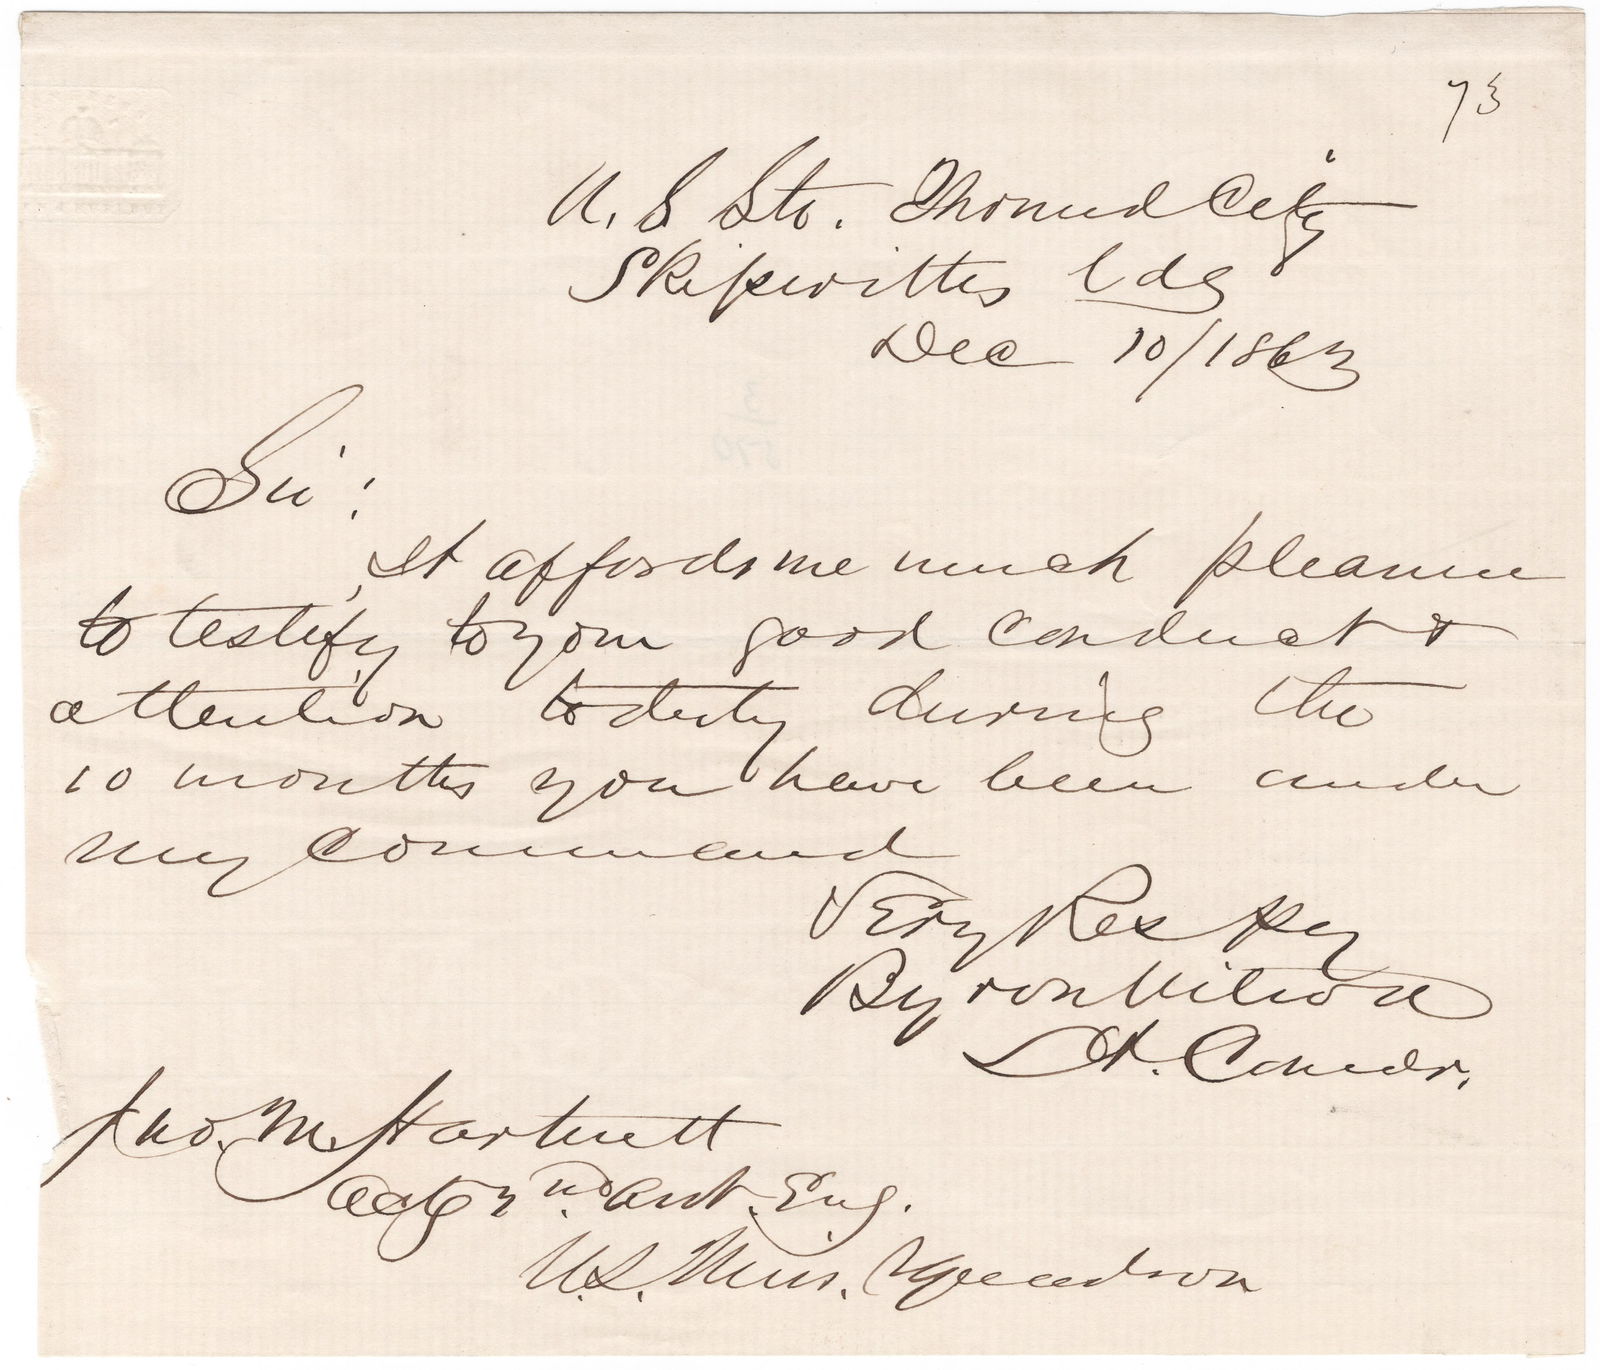 73
U. S Str. Mound City
Skipwiths Ldg
Dec 10/1863
Sir:
It affords me much pleasure
to testify to your good conduct &
attention to duty during the
10 months you have been under
my command
Very Respy
Byron Wilson
Lt. Comdr.
Jno. M. Hartnett
Actg 2nd. Asst. Eng.
U.S. Miss. Squadron